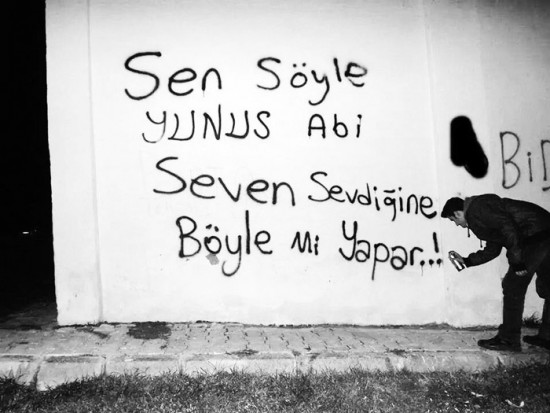 Sen Söyle
YUNUS Abi
Seven Sevdiğine
Böyle Mi Yapar..!